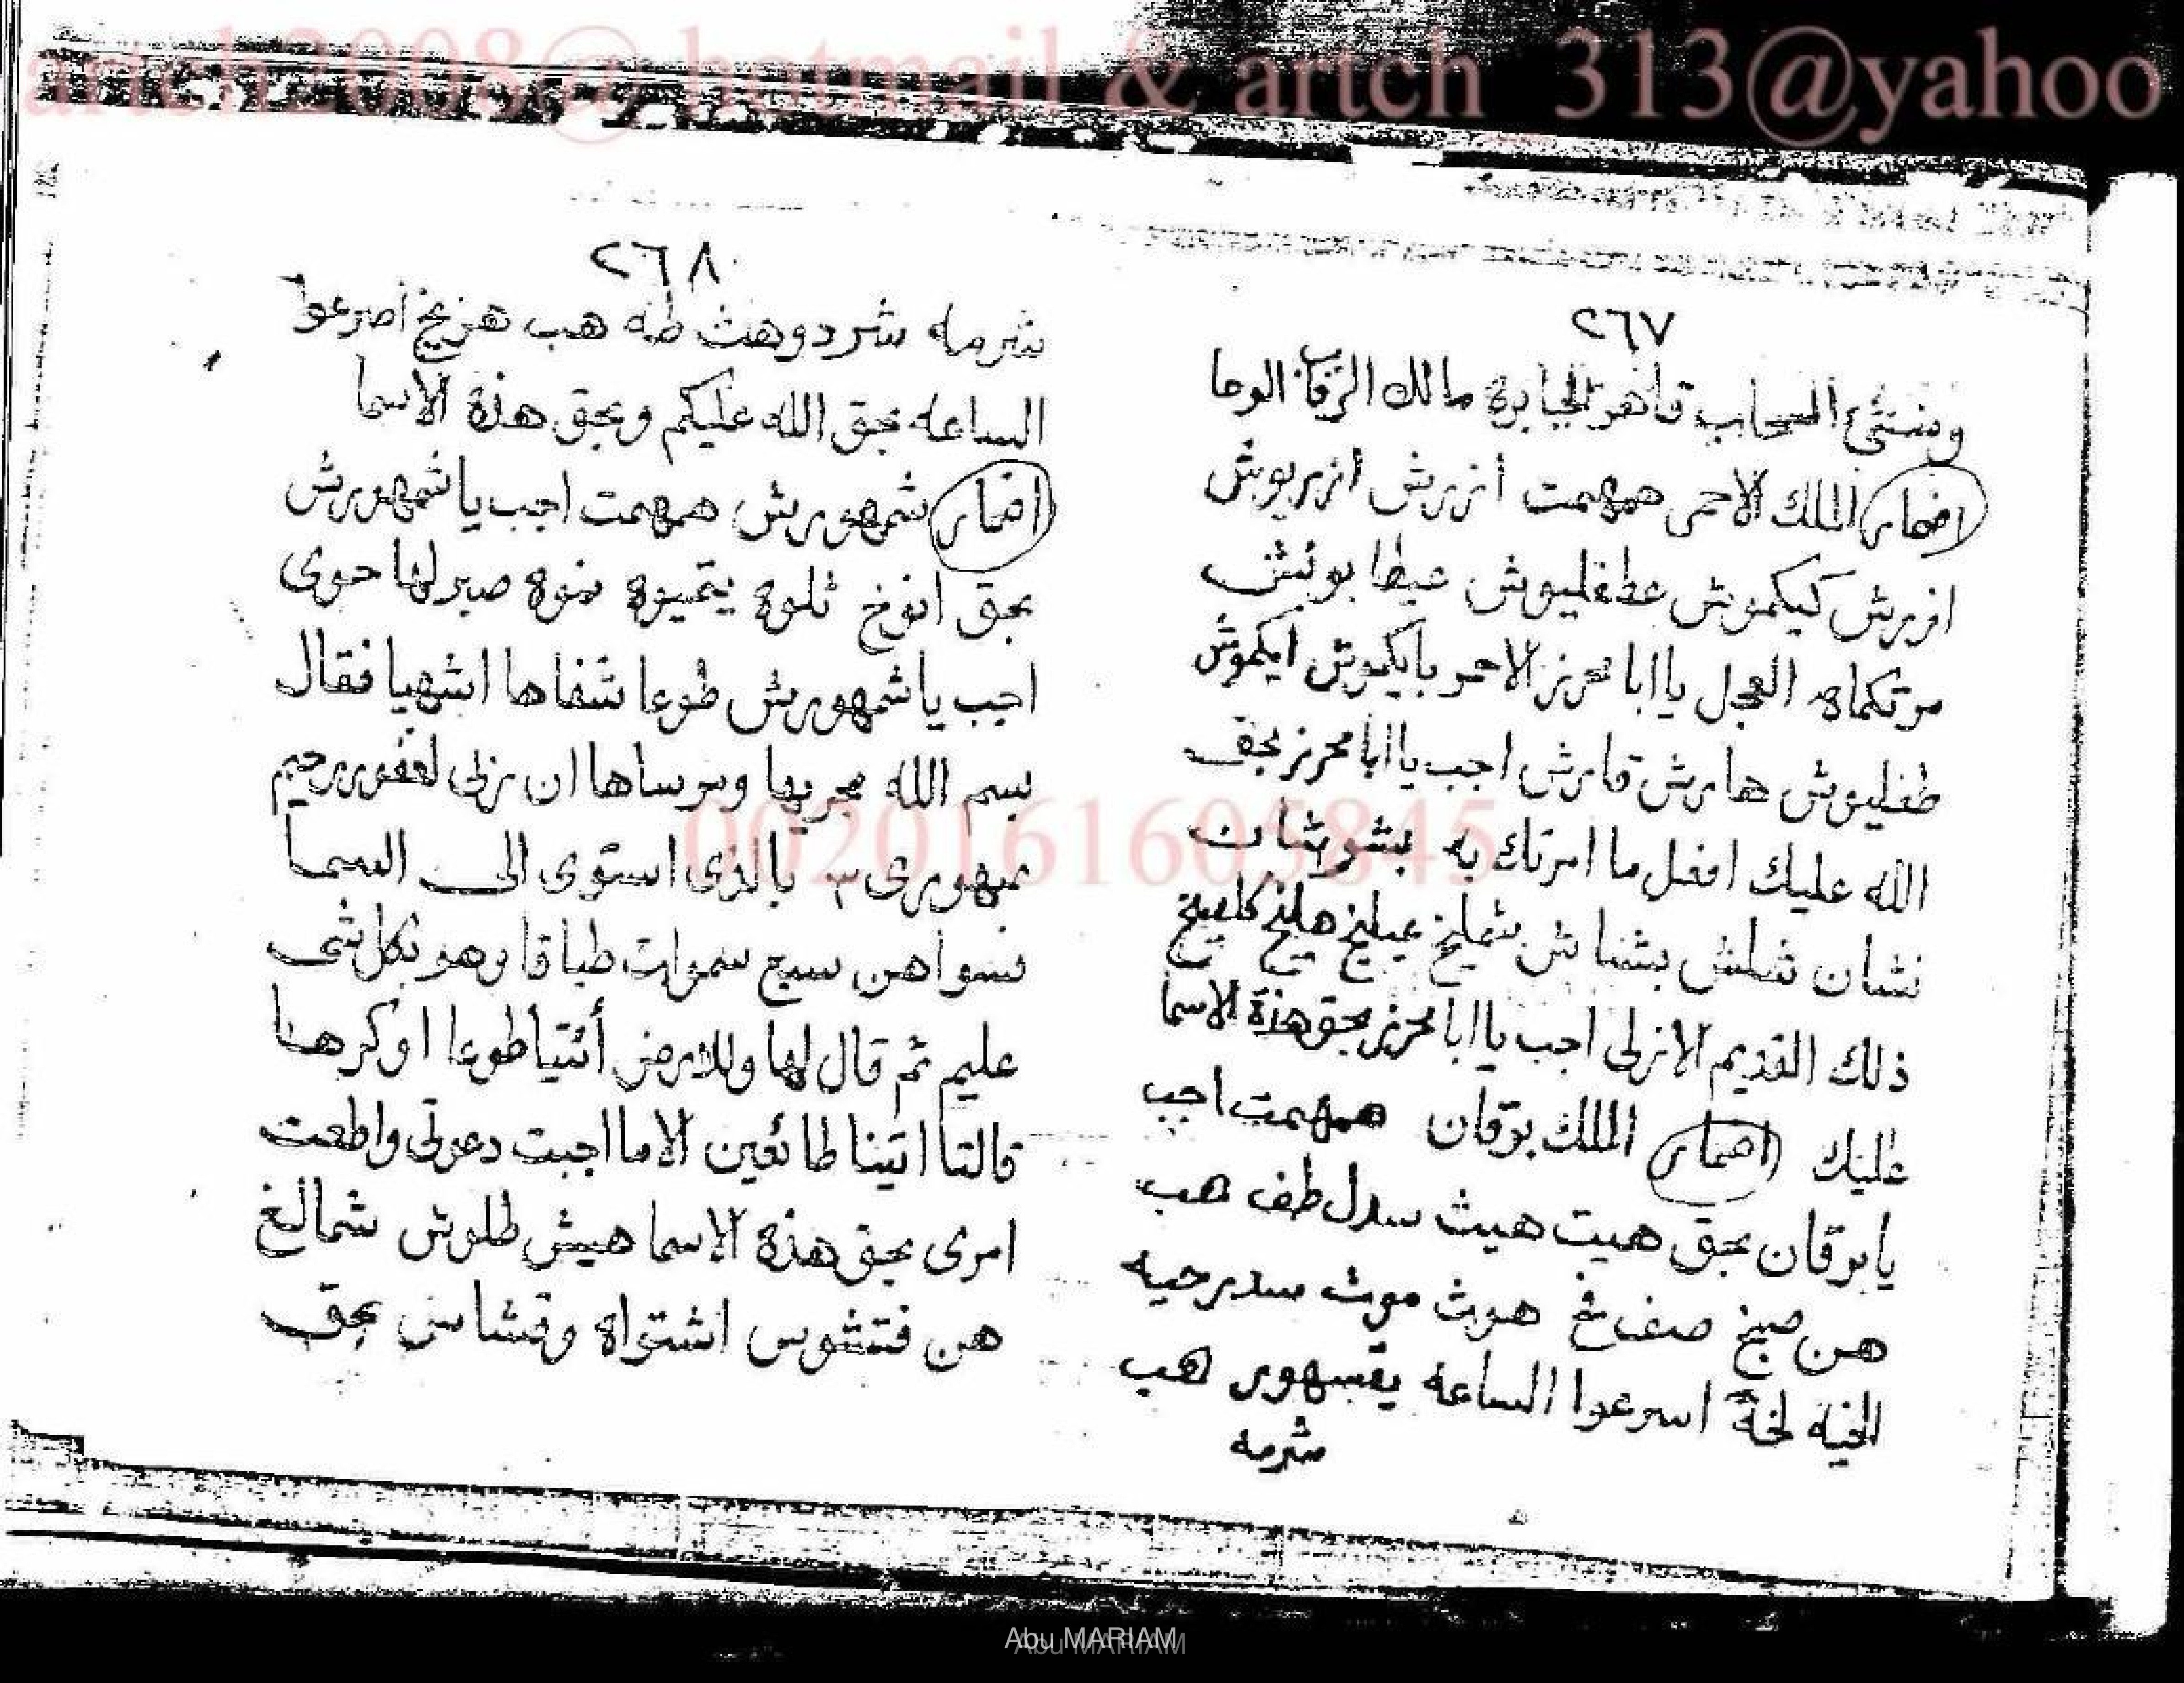 artch2008@hotmail & artch_313@yahoo
٢٦٧
ومنشئ السحاب قاهر الجبابرة مالك الرقاب الوحا
اضمار الملك الاحمر همهمت ازرش ازربوش
ازبرش كيكموش عطفليوش عيطابونش
مرتكماه العجل ياابا محرز الاحمر بايكموش ايكموش
طفليوش هارش قارش اجب ياابا محرز بحق
الله عليك افعل ما امرتك به بشرشان
نشان شلش بشناش شملخ
ذلك القديم الازلى اجب ياابا محرز بحق هذة الاسما
عليك اضمار الملك برقان همهمت اجب
يا برقان بحق هيت هيث سدل طف هب
هن صيخ صف هوث موث سدبرحيه
اسرعوا الساعة هب
شرمه
٢٦٨
شرمه شردوهث طه هب اصرعوا
الساعه بحق الله عليكم وبحق هذة الاسما
اضمار شمهورش همهمت اجب يا شمهورش
بحق انوخ نموه حوى
اجب يا شمهورش طوعا شفاها اشهيا فقال
بسم الله مجريها ومرساها ان ربى لغفور رحيم
٣ بالذى استوى الى السما
فسواهن سبع سموات طباقا وهو بكل شى
عليم ثم قال لها وللارض أئتيا طوعا او كرها
قالتا اتينا طائعين الاما اجبت دعوتى واطعت
امرى بحق هذه الاسما هيش طلوش شمالخ
هن فتشوس اشتواه وقشاش بحق
0020161605845
Abu MARIAM
Abu MARIAM